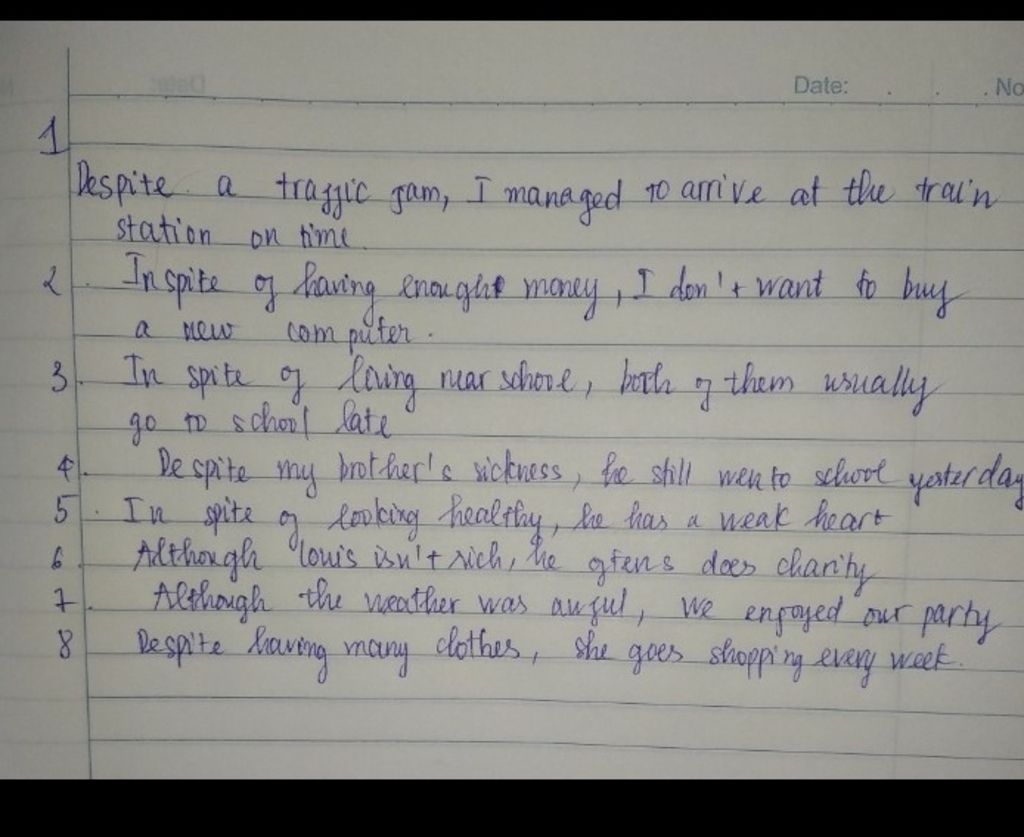 Date: . . . No
1
Despite a traffic jam, I managed to arrive at the train
station on time
2. In spite of having enought money, I don't want to buy
a new computer.
3. In spite of living near school, both of them usually
go to school late
4. Despite my brother's sickness, he still wen to school yesterday
5. In spite of looking healthy, he has a weak heart
6 Although louis isn't rich, he oftens does charity
7. Although the weather was awful, we enjoyed our party
8 Despite having many clothes, she goes shopping every week.